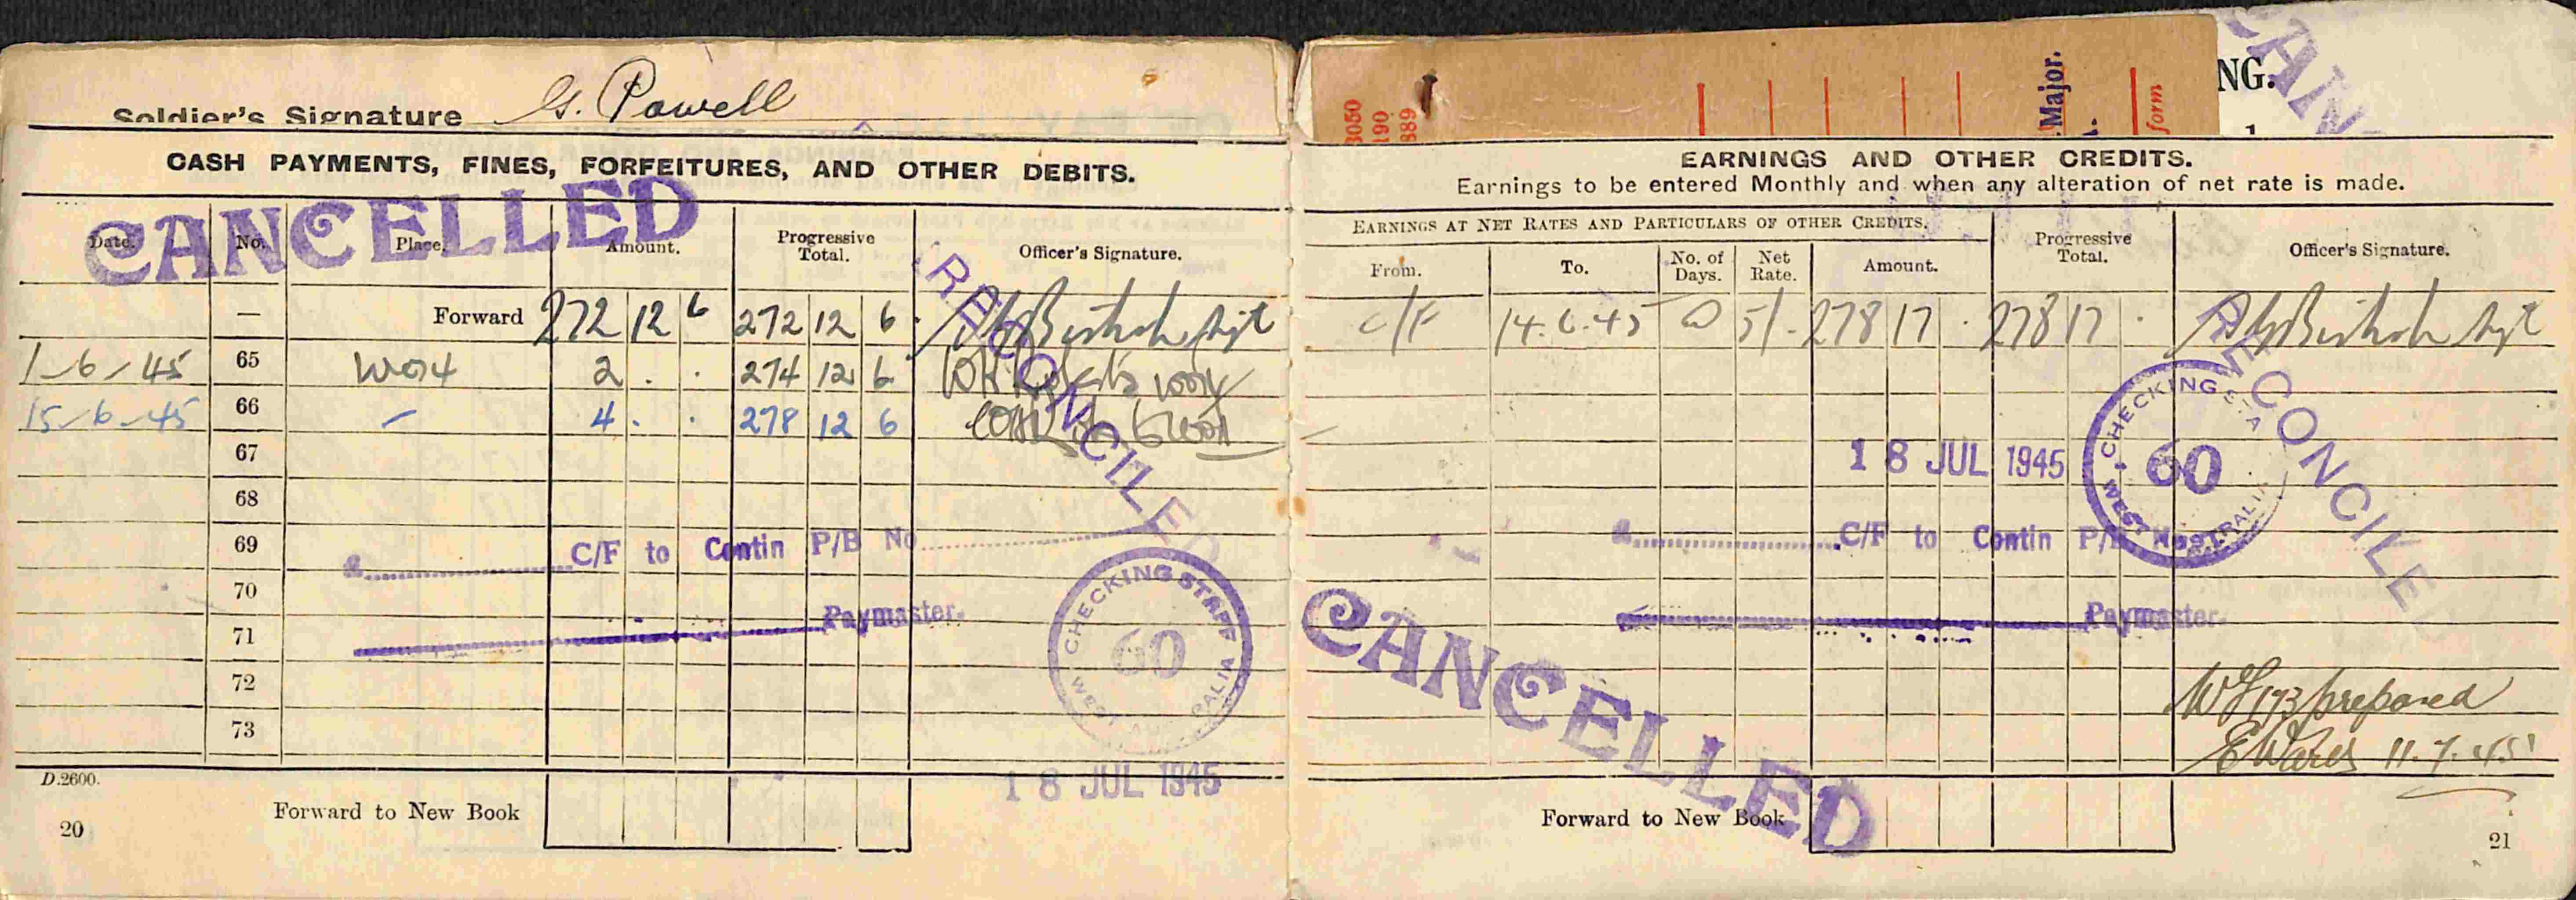 Soldier's Signature G. Powell
CASH PAYMENTS, FINES, FORFEITURES, AND OTHER DEBITS.
CANCELLED
Date. No. Place. Amount. Progressive Total. Officer's Signature.
— Forward 272 12 6 272 12 6
1-6-45 65 2 . . 274 12 6
15-6-45 66 — 4 . . 278 12 6
67
68
69
70
71
72
73
RECONCILED
C/F to Contin P/B No
Paymaster.
CHECKING STAFF
60
WEST AUSTRALIA
18 JUL 1945
D.2600.
Forward to New Book
20
3050
190
889
Major.
form
NG.
CAN
EARNINGS AND OTHER CREDITS.
Earnings to be entered Monthly and when any alteration of net rate is made.
EARNINGS AT NET RATES AND PARTICULARS OF OTHER CREDITS.
From. To. No. of Days. Net Rate. Amount. Progressive Total. Officer's Signature.
C/F 14.6.45 @ 5/- 278 17 . 278 17 .
RECONCILE
CHECKING STA
60
WEST AUSTRALIA
18 JUL 1945
C/F to Contin P/B No
Paymaster.
CANCELLED
prepared
11.7.45
Forward to New Book
21